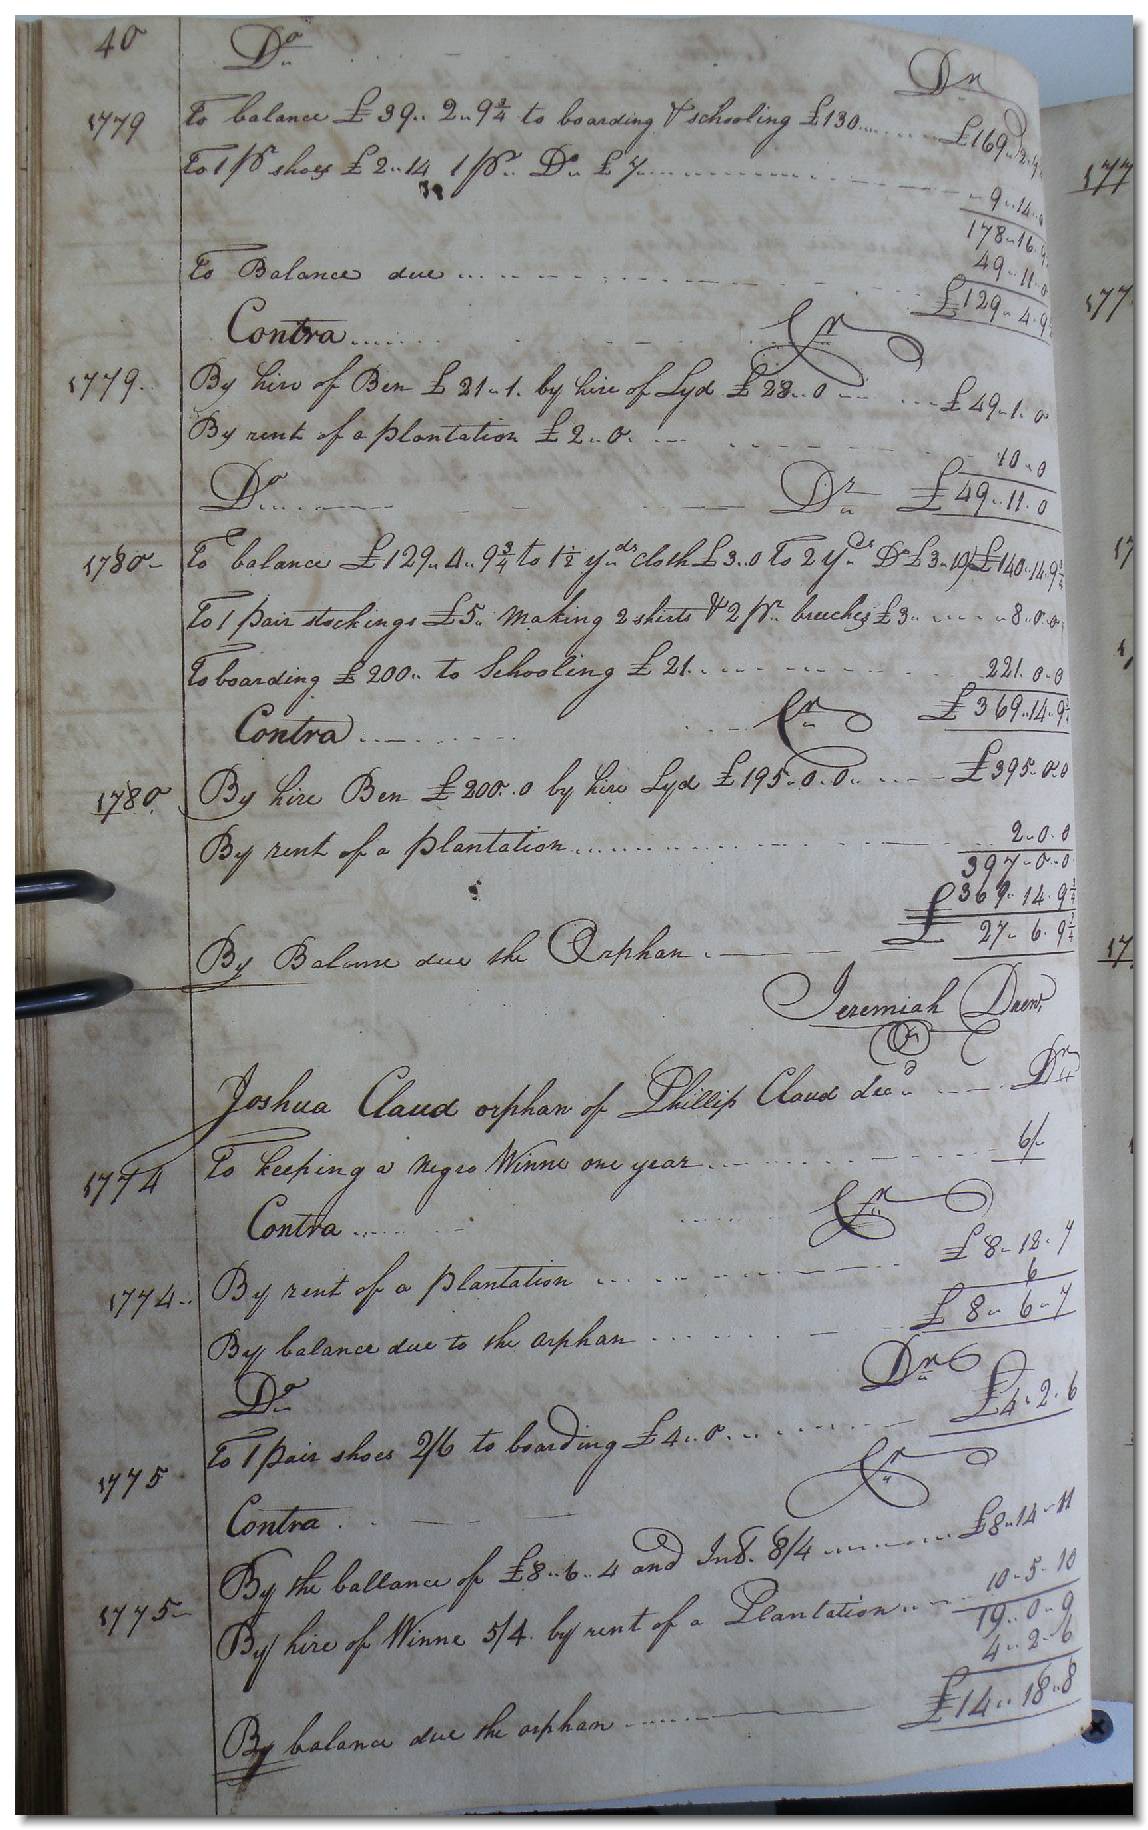 40 Do Dr
1779 To balance £39.. 2.. 9¾ to boarding & schooling £130 £169..2..9
To 1 pr shoes £2..14 1 pr.. Do £7 9..14..0
178..16..9
49..11..0
To Balance due £129..4..9
Contra Cr
1779. By hire of Ben £21..1. by hire of Lyd £28..0 £49..1..0
By rent of a plantation £2..0. 10..0
Do Dr £49..11..0
1780 To balance £129..4..9¾ to 1½ yds cloth £3..0 To 2 yds Do £3..10 £140..14..9¾
To 1 pair stockings £5.. making 2 shirts & 2 pr.. breeches £3 8..0..0
To boarding £200.. to Schooling £21 221..0..0
£369..14..9¾
Contra Cr
1780. By hire Ben £200..0 by hire Lyd £195..0..0 £395..0..0
By rent of a plantation 2..0..0
397..0..0
£369..14..9¾
By Balance due the Orphan 27..6..9¾
Jeremiah Drew
Joshua Claud orphan of Phillip Claud decd Dr
1774 To keeping a negro Winne one year 6/
Contra Cr
1774 By rent of a plantation £8..12..7
6
By balance due to the orphan £8..6..7
Do Dr
1775 To 1 pair shoes 2/6 to boarding £4..0 £4..2..6
Contra Cr
1775 By the ballance of £8..6..4 and Int. 8/4 £8..14..11
By hire of Winne 5/4. by rent of a Plantation 10..5..10
19..0..9
4..2..6
By balance due the orphan £14..18..8